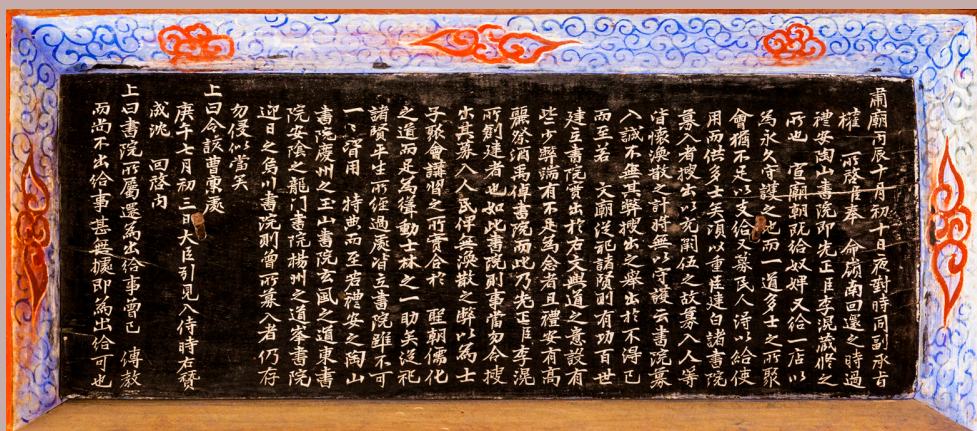 肅廟丙辰十月初十日夜對時同副承旨
權 所啓臣奉 命嶺南回還之時過
禮安陶山書院卽先正臣李滉藏修之
所也 宣廟朝旣給奴婢又給一店以
爲永久守護之地而一道多士之所聚
會猶不足以支給又募民人得以給使
用而供多士矣頃以重臣建白諸書院
募入者搜出以充闕伍之故募入人等
皆懷渙散之計將無以守護云書院募
入誠不無其弊搜出之擧出於不得已
而至若 文廟從祀諸賢則有功百世
建立書院實出於右文興道之意設有
些少弊端有不足爲念者且禮安有高
麗祭酒禹倬書院而此乃先正臣李滉
所創建者也如此書院則事當勿令搜
出其募入人民俾無渙散之弊以爲士
子聚會講習之所實合於 聖朝儒化
之道而足爲聳動士林之一助矣從祀
諸賢平生所經過處皆立書院雖不可
一一 用 特典而至若禮安之陶山
書院慶州之玉山書院玄風之道東書
院安陰之龍門書院楊州之道峯書院
迎日之烏川書院則曾所募入者仍存
勿侵似當矣
上曰令該曹稟處
庚午七月初三日大臣引見入侍時右贊
成沈 回啓內
上曰書院所屬還爲出給事曾已 傳敎
而尙不出給事甚無據卽爲出給可也